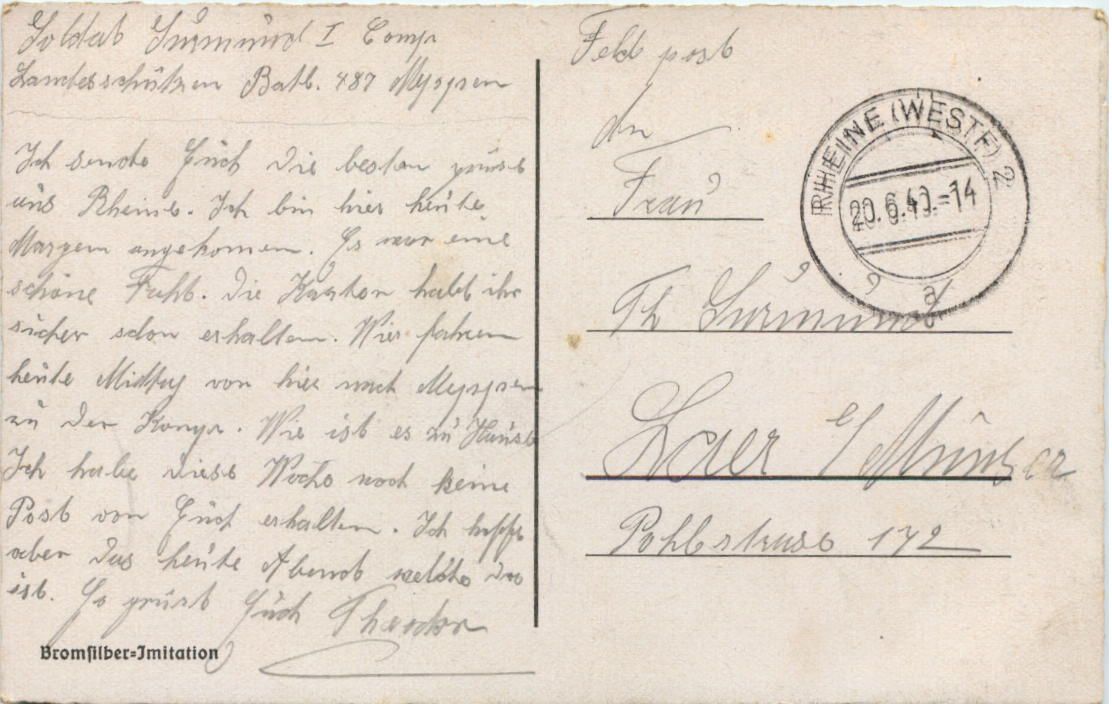 Soldat Surmund I Comp
Landesschützen Batl. 487 Meppen
Ich sende Euch die besten grüse
aus Rheine. Ich bin hier heute
Morgen angekommen. Es war eine
schöne Fahrt. Die Karton habt ihr
sicher schon erhalten. Wir fahren
heute Mittag von hier nach Meppen
zu der Komp. Wie ist es zu Hause
Ich habe diese Woche noch keine
Post von Euch erhalten. Ich hoffe
aber das heute Abend welche da
ist. Es grüst Euch Theodor
Bromsilber-Imitation
Feld post
An
Frau
Th Surmund
Laer b/Münster
Pohlstrase 172
RHEINE (WESTF) 2
20.6.40.-14
a